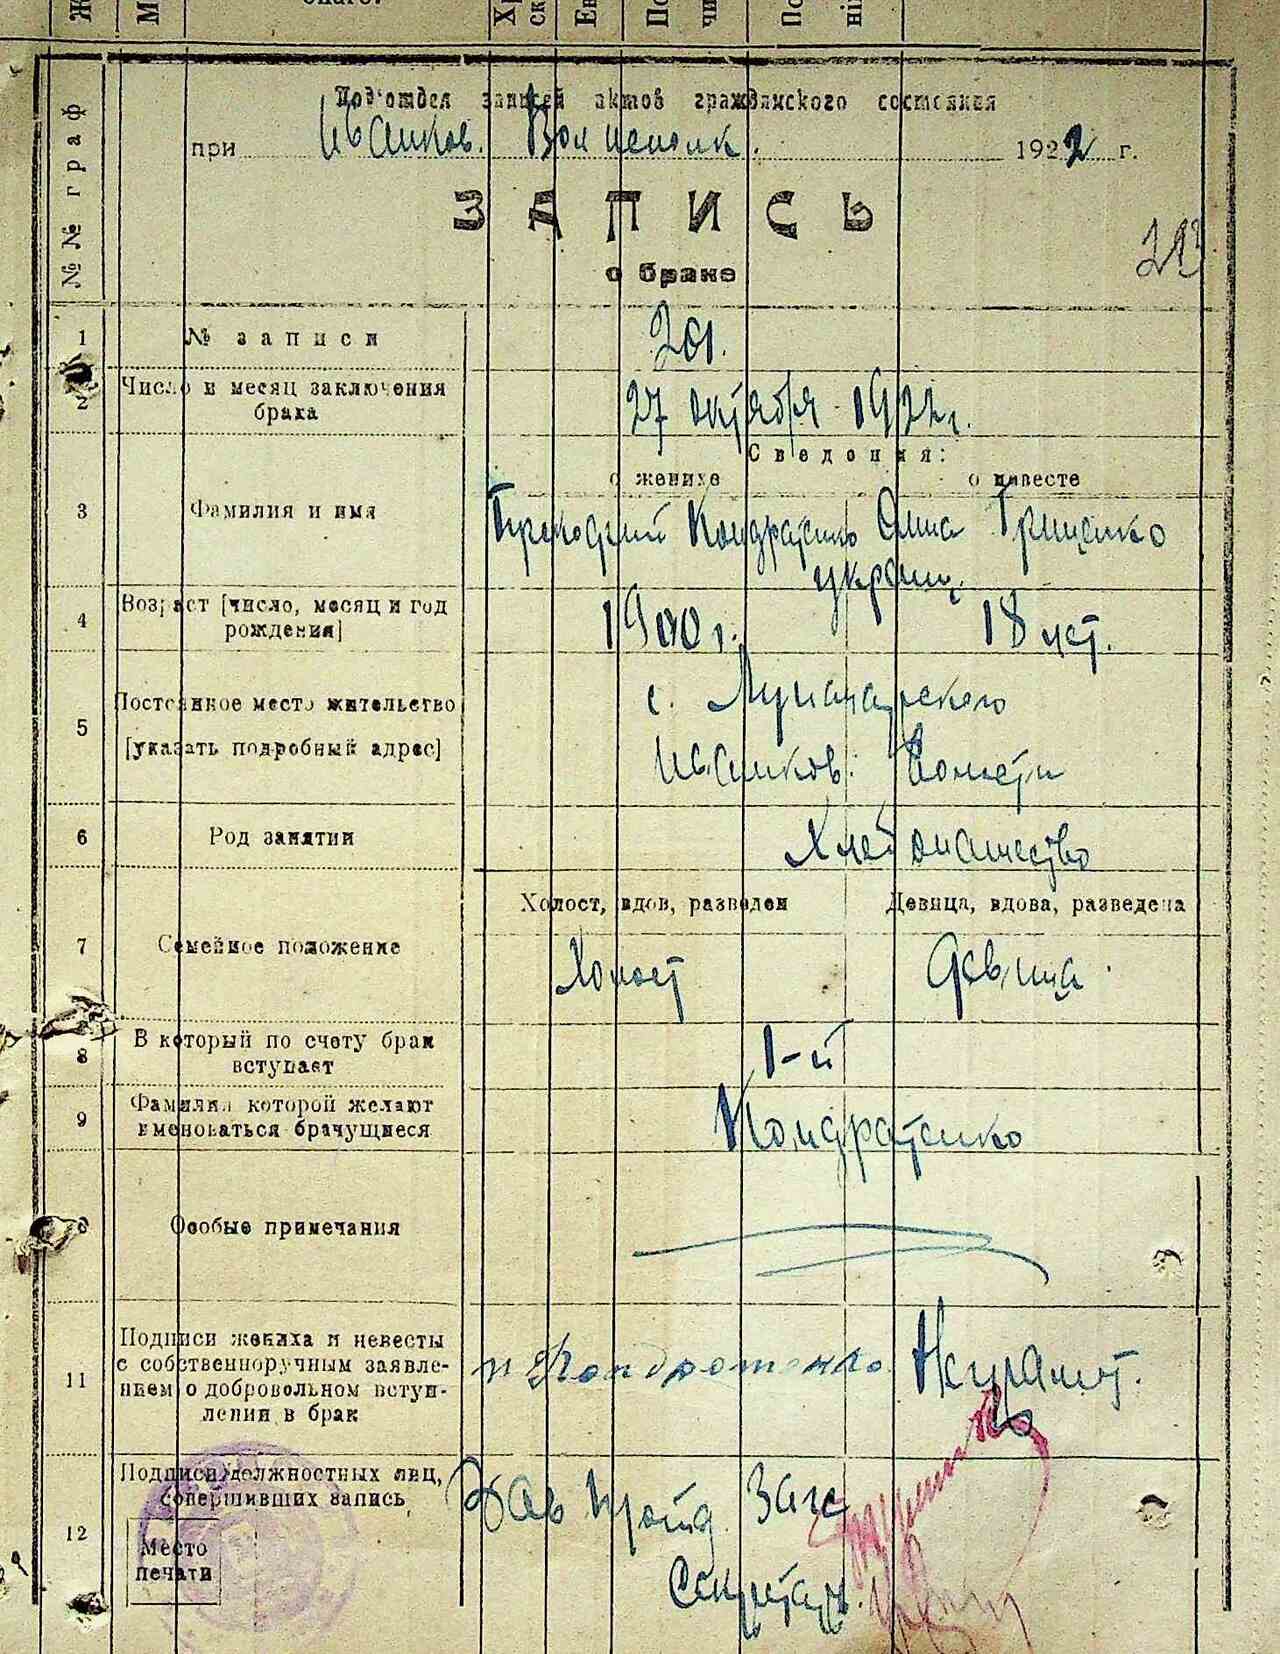 Под'отдел записей актов гражданского состояния
при Иванков. Волисполк. 1922 г.
№№ граф
ЗАПИСЬ
о браке
1 № записи 201.
2 Число и месяц заключения брака 27 октября 1922 г.
Сведения:
о женихе о невесте
3 Фамилия и имя Кондратенко Анна Гриценко
украин.
4 Возраст [число, месяц и год рождения] 1900 г. 18 лет.
5 Постоянное место жительство с. Луначарского
[указать подробный адрес] Иванков. Волости
6 Род занятий Хлебопашество
Холост, вдов, разведен Девица, вдова, разведена
7 Семейное положение Холост Девица.
8 В который по счету брак вступает 1-й
9 Фамилия которой желают именоваться брачущиеся Кондратенко
Особые примечания
11 Подписи жениха и невесты
с собственноручным заявле-
нием о добровольном вступ-
лении в брак
Кондратенко Неграмот.
12 Подписи должностных лиц,
совершивших запись
Зав Загс
Секретарь
Место
печати